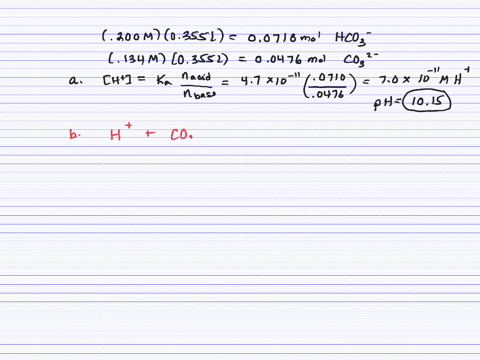 (.200 M)(0.355 L) = 0.0710 mol HCO₃⁻
(.134 M)(0.355 L) = 0.0476 mol CO₃²⁻
a. [H⁺] = Ka nacid/nbase = 4.7 × 10⁻¹¹ (.0710/.0476) = 7.0 × 10⁻¹¹ M H⁺
pH = 10.15
b. H⁺ + CO